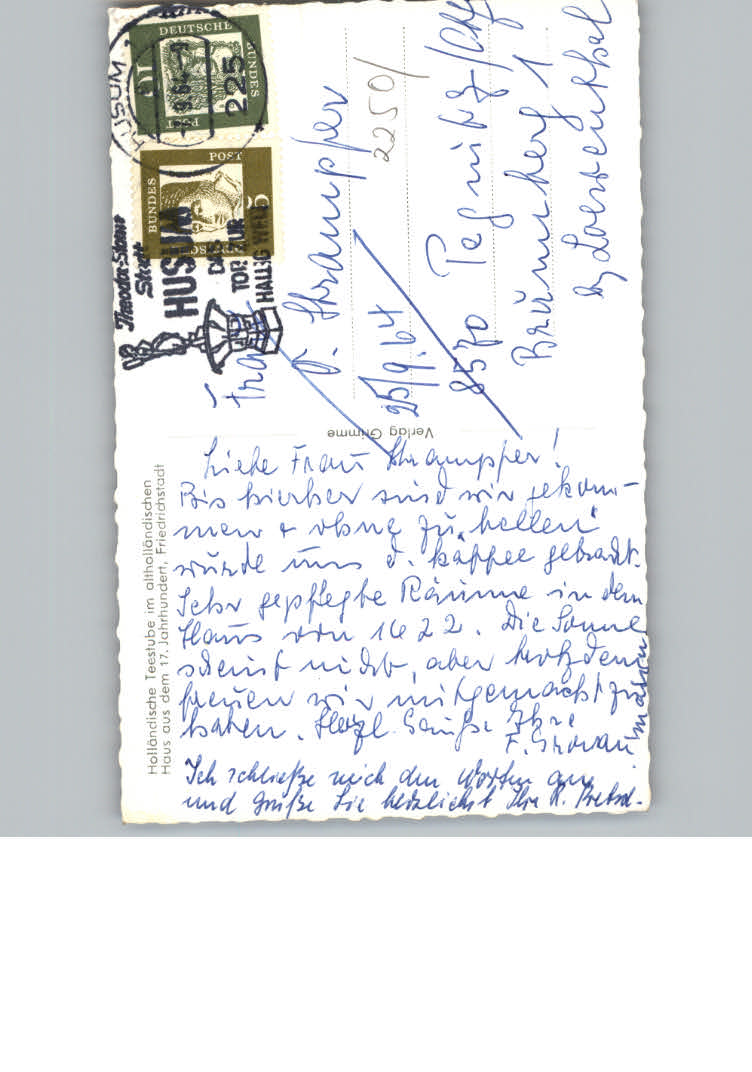 Holländische Teestube im altholländischen
Haus aus dem 17. Jahrhundert, Friedrichstadt
Liebe Frau Strampfer!
Bis hierher sind wir gekom-
men + ohne zu „bellen“
wurde uns d. Kaffee gebracht.
Sehr gepflegte Räume in dem
Haus von 1622. Die Sonne
scheint nicht, aber trotzdem
freuen wir mitgemacht zu
haben. Herzl. Grüße Ihre
F.
Ich schließe mich den Worten an
und Grüße Sie herzlichst Ihre K.
Verlag Grimme
Frau
D. Strampfer
2250/
25/9.64
8570 Pegnitz/Ofr
Brünnberg 1
by Loewenthal
DEUTSCHE BUNDESPOST
DEUTSCHE BUNDESPOST
HUSUM
9.64
225
Theodor-Storm
Stadt
HUSUM
DAS
TOR ZUR
HALLIG WELT